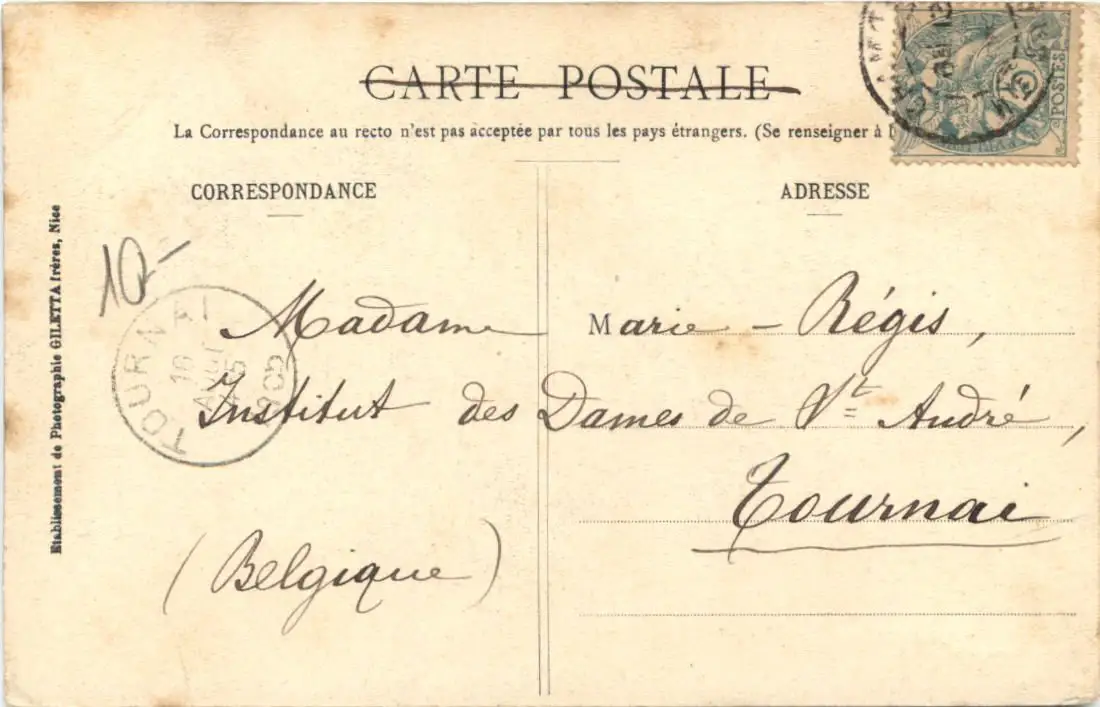 CARTE POSTALE
La Correspondance au recto n'est pas acceptée par tous les pays étrangers. (Se renseigner à
CORRESPONDANCE
ADRESSE
Etablissement de Photographie GILETTA frères, Nice
10-
TOURNAI
1905
POSTES
Madame Marie - Régis,
Institut des Dames de St André,
Tournai
(Belgique)